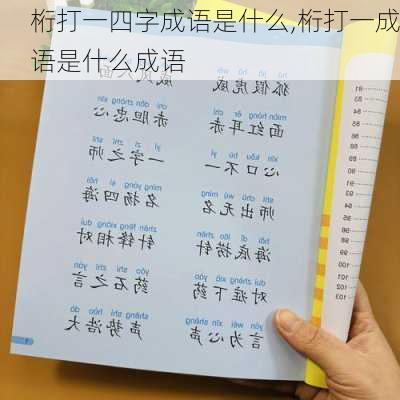 桁打一四字成语是什么,桁打一成
语是什么成语
狐假虎威
miàn hóng ěr chì
面红耳赤
chì dǎn zhōng xīn
赤胆忠心
xīn kǒu bù yī
心口不一
yī zì zhī shī
一字之师
shī chū wú míng
师出无名
míng yáng sì hǎi
名扬四海
hǎi dǐ lāo zhēn
海底捞针
zhēn fēng xiāng duì
针锋相对
duì zhèng xià yào
对症下药
yào shí zhī yán
药石之言
yán wéi xīn shēng
言为心声
shēng shì hào dà
声势浩大